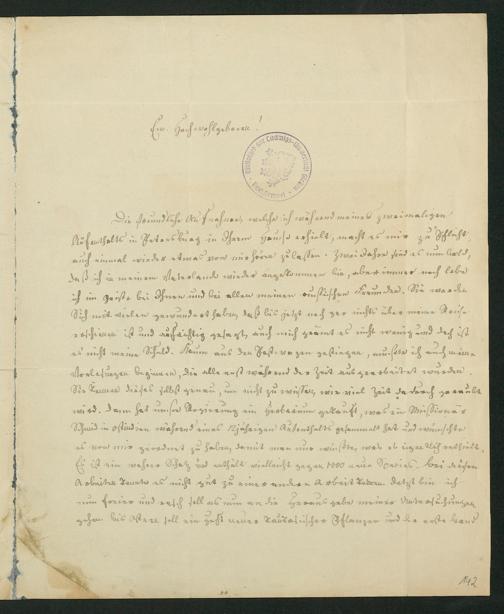 Ew. Hochwohlgeboren!
Die freundliche Aufnahme, welche ich während meines zweimaligen
Aufenthalts in Petersburg in Ihrem Hause erhielt, macht es mir zur Pflicht,
auch einmal wieder etwas von mir hören zu lassen. Zwei Jahre sind es nun bald,
daß ich in meinem Vaterlande wieder angekommen bin, aber immer noch lebe
ich im Geiste bei Ihnen und bei allen meinen russischen Freunden. Sie werden
Sich mit vielen gewundert haben, daß bis jetzt noch gar nichts über meine Reise
erschienen ist und aufrichtig gesagt, auch mich grämt es nicht wenig und doch ist
es nicht meine Schuld. Kaum aus dem Postwagen gestiegen, mußte ich auch meine
Vorlesungen beginnen, die alle erst während der Zeit ausgearbeitet wurden.
Sie kennen dieses selbst genau, um nicht zu wissen, wie viel Zeit dadurch geraubt
wird. Dann hat unsere Regierung ein Herbarium gekauft, was ein Missionär
Schmid in Ostindien während eines 12jährigen Aufenthalts gesammelt hat und wünschte
es von mir geordnet zu haben, damit man nur wüßte, was es eigentlich enthielt.
Es ist ein wahrer Schatz und enthält vielleicht gegen 1000 neue Species. Bei diesen
Arbeiten konnte es nicht gut zu einer andern Arbeit kommen. Jetzt bin ich
nun freier und rasch soll es nun an die Herausgabe meiner Untersuchungen
gehen. Bis Ostern soll ein Heft neuer kaukasischer Pflanzen und der erste Band
142